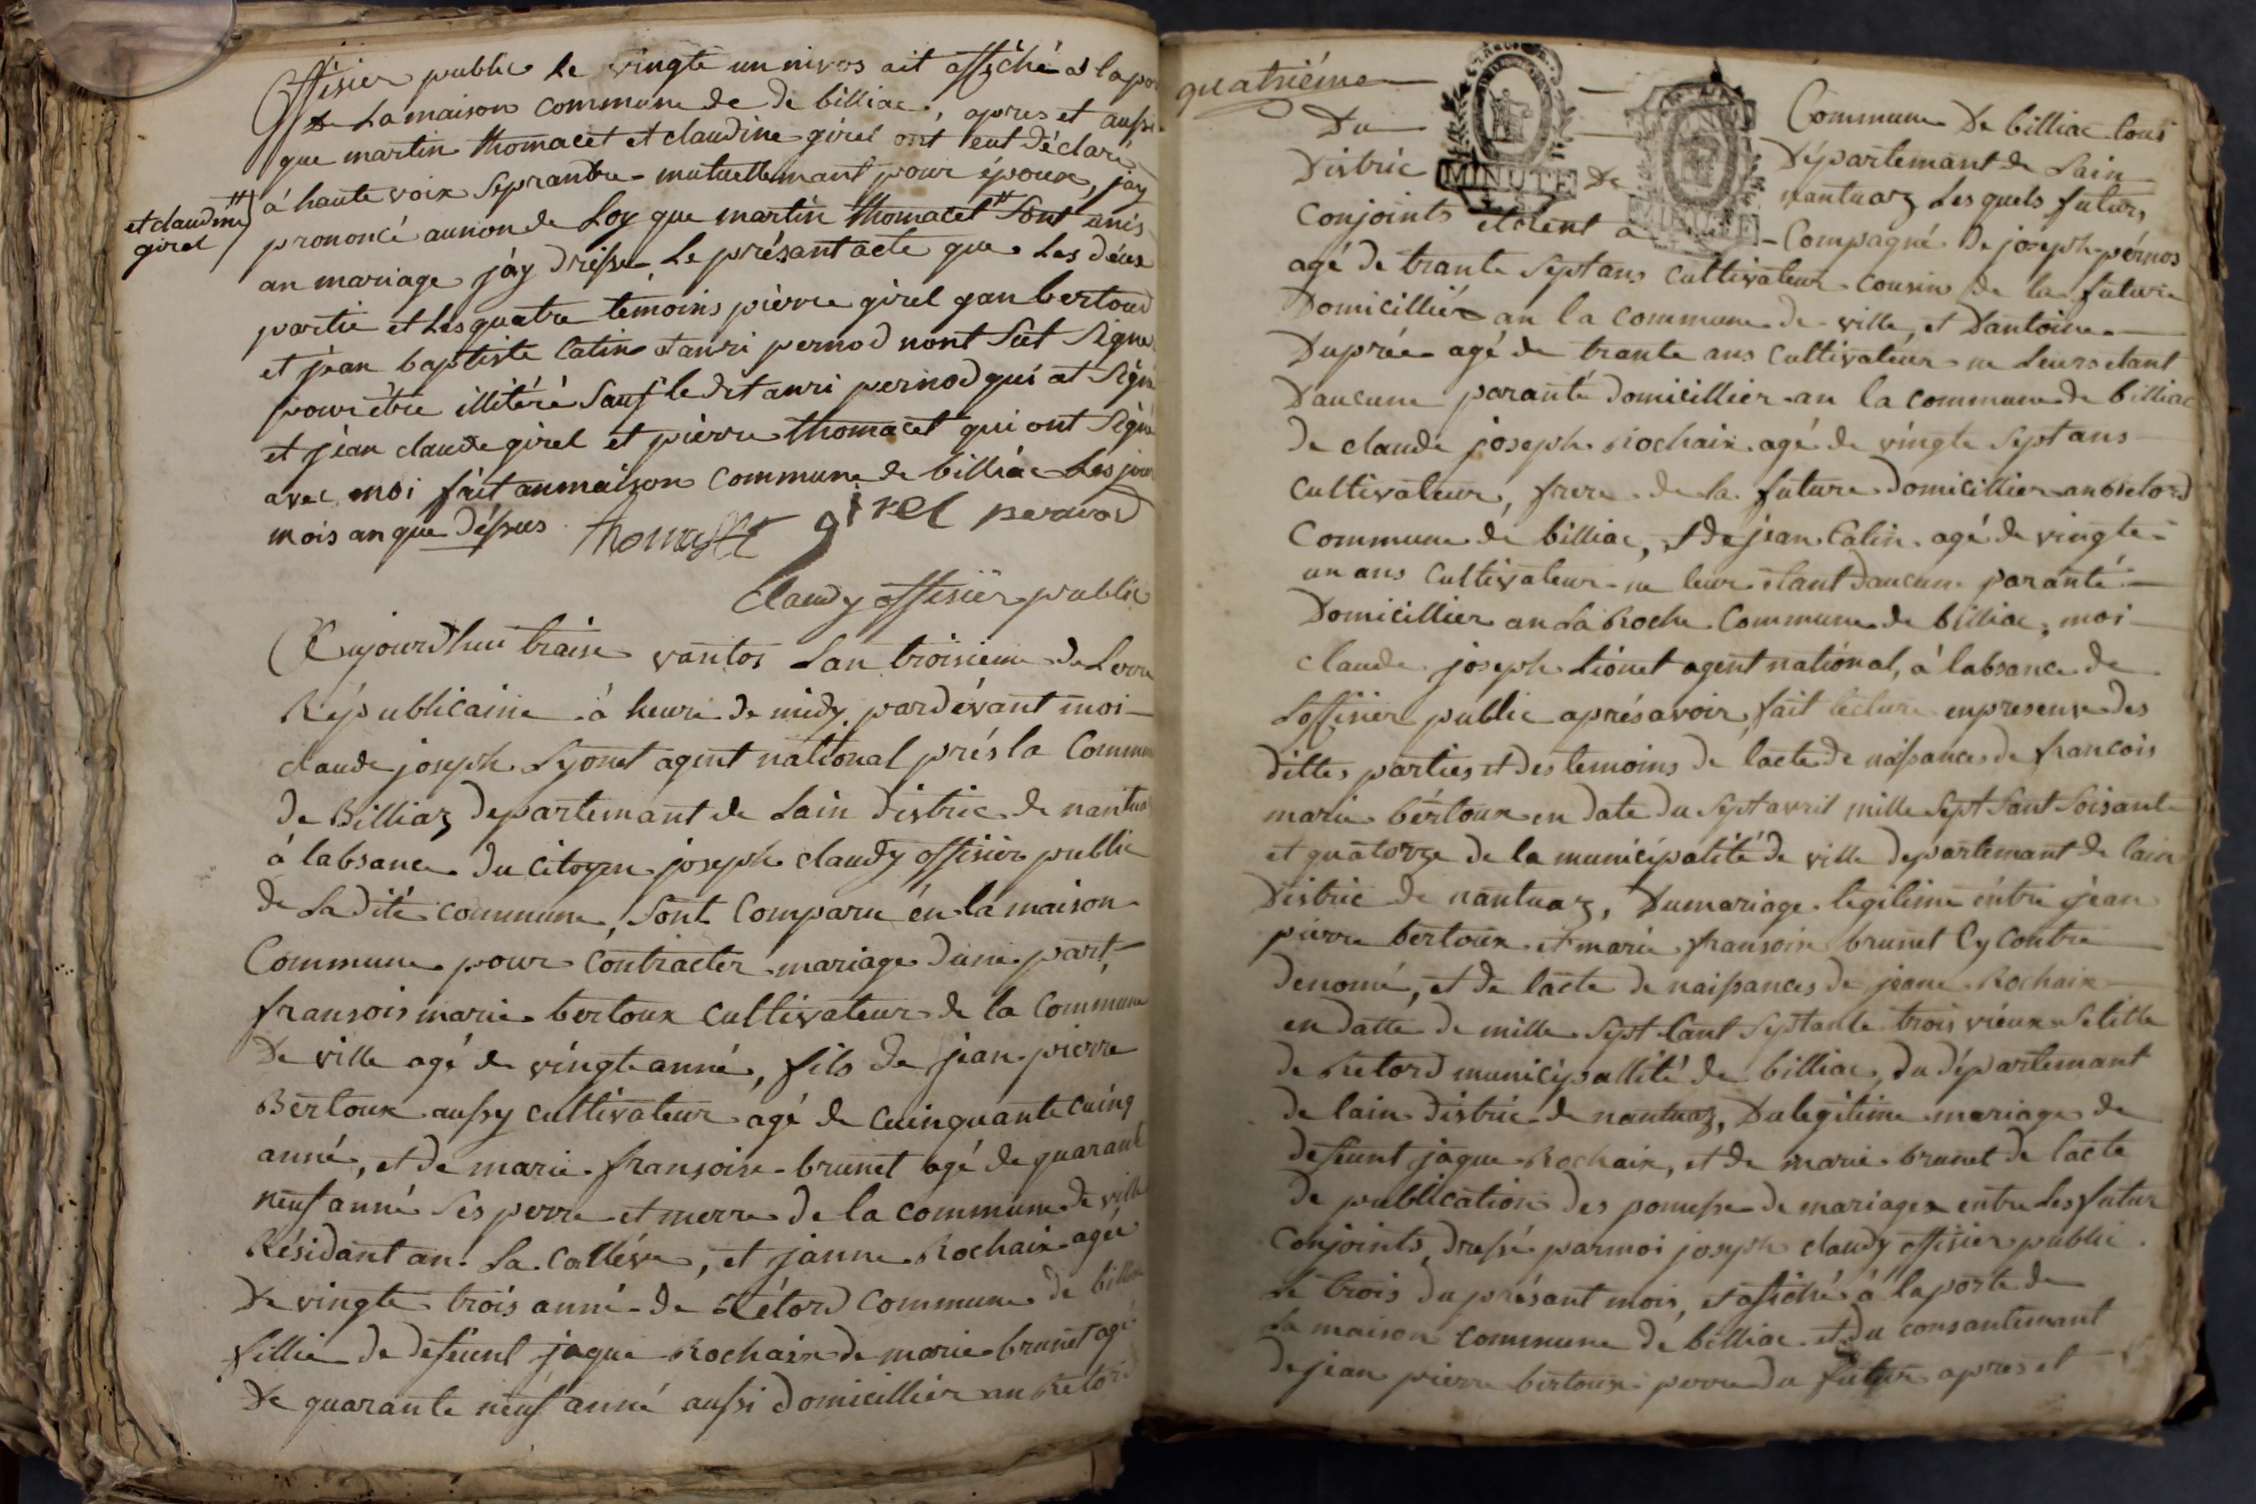 Offisier public le vingte un nivos ait affiché a la por
de La maison commune de de billiac, apres et aussi
que martin thomacet et claudine girel ont eut déclaré
à haute voix seprantre mutuellemant pour époux, jay
et claudine
girel
prononcé aunon de Loy que martin thomacet # sont unis
an mariage jáy dressé Le présant acte que Les déux
partie et Les quatre témoins piérre girel gan bertoud
et jéan baptiste Catin et anri pernod nont sut signe
pour être illitéré sauf le dit anri pernod qui at signé
et jéan claude girel et piérre thomacet qui ont signé
avec moi fait anmaison commune de billiac Les jour
mois an que déssus thomasset girel pernod
Claudy offisiér public
Aujourdhui traise vantos Lan troisieme de Lerre
Républicaine à heure de midy pardévant moi
claude joseph Lyonet agent national prés la Commun
de Billiaz departemant de Lain distric de nantua
á labsance du citoyen joseph claudy offisiér public
de La dité commune, sont Comparu én la maison
Commune pour Contracter mariage dune part
fransois marie bertoux cultivateur de la Commune
de ville agé de vingte anné, fils de jéan pierre
Bertoux aussy cultivateur agé de cuinquante cuinq
anné, et de marie fransoise brunet agé de quarante
neuf anné ses perre et merre de la commune de ville
Résidant an La Collévre, et janne Rochaix agée
de vingte trois anné de Rétord commune de billiac
fillie de defeunt jaque Rochaix de marie brunet agé
de quarante neuf anné aussi domicillier an Retord
quatriéme
Du Commune de billiac tous
distric MINUTE de Départemant de Lain
nantuaz Les quels futurs
Conjoints etoient a Compagné de joseph pérnos
agé de trante sept ans cultivateur cousin de la future
domicilliér an la commune de ville, et dantoine
Duprée agé de trante ans cultivateur ne Leurs etant
daucune paranté domicillier an la commune de billiac
de claude joseph Rochaix agé de vingte sept ans
cultivateur, frere de La future domicillier an Retord
Commune de billiac, et de jéan Catin agé de vingte
un ans Cultivateur ne leur etant daucune paranté
Domicillier an La Roche Commune de billiac, moi
claude joseph Liónet agent national, à labsance de
Loffisier public aprés avoir fait lecture enpresence des
dittes parties et des temoins de lacte de naissances de francois
marie bértoux en date du sept avril mille sept sant soisante
et quatorze de la municipalité de ville departemant de lain
distric de nantuaz, du mariage legitime éntre jéan
piérre bertoux et marie fransoise brunet Cy contre
denomé, et de lacte de naissances de jeane Rochaix
en datte de mille sept cant septante trois viéux setille
de Retord municipallité de billiac, du départemant
de lain distric de nantuaz, du legitime mariage de
defeunt jaque Rochaix, et de marie brunet de lacte
de publication des pomesse de mariages entre Les futur
Conjoints, dressé parmoi joseph claudy offisier public
Le trois du présant mois, et afiché à la porte de
La maison commune de billiac et du consantemant
de jéan pierre bertoux perre du futur apres et